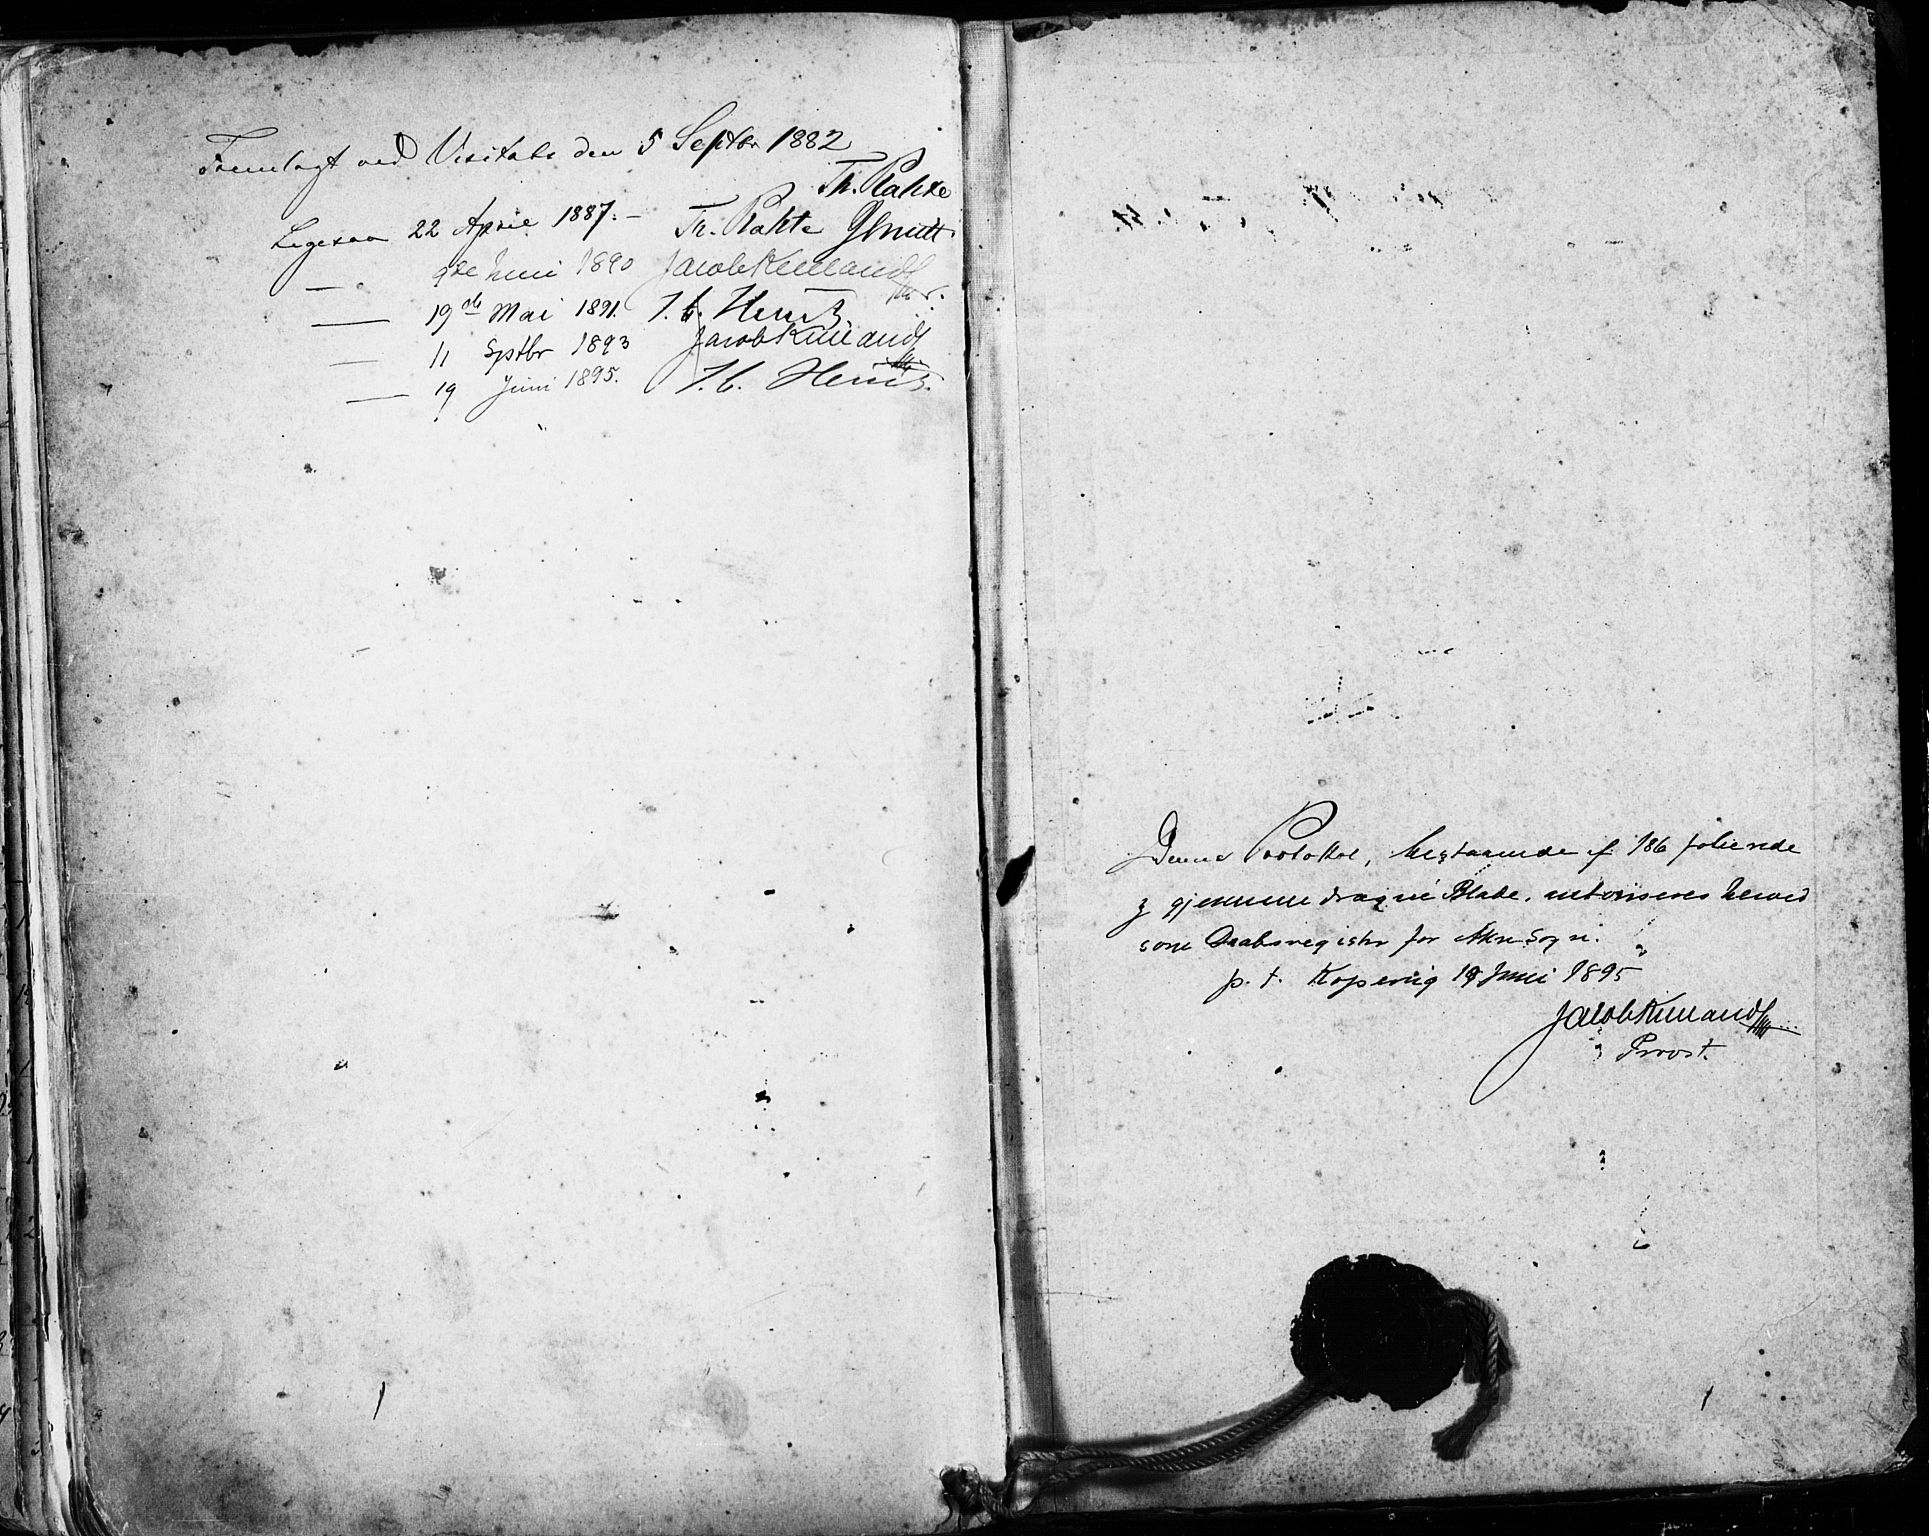 Fremlagt ved Visitats den 5 Septbr 1882
Th. Rahte
Ligesaa 22 April 1887. – Th. Rahte
— 9de Juni 1890 Jacob Kielland
— 19de Mai 1891. J. C. Heuch.
— 11 Septbr 1893 Jacob Kielland
— 19 Juni 1895. J. C. Heuch.
Denne Protokol, bestaaende af 186 folierede
og gjennemdragne Blade, autoriseres herved
som Daabsregister for Akre Sogn.
p. t. Kopervig 19 Juni 1895
Jacob Kielland
Provst.